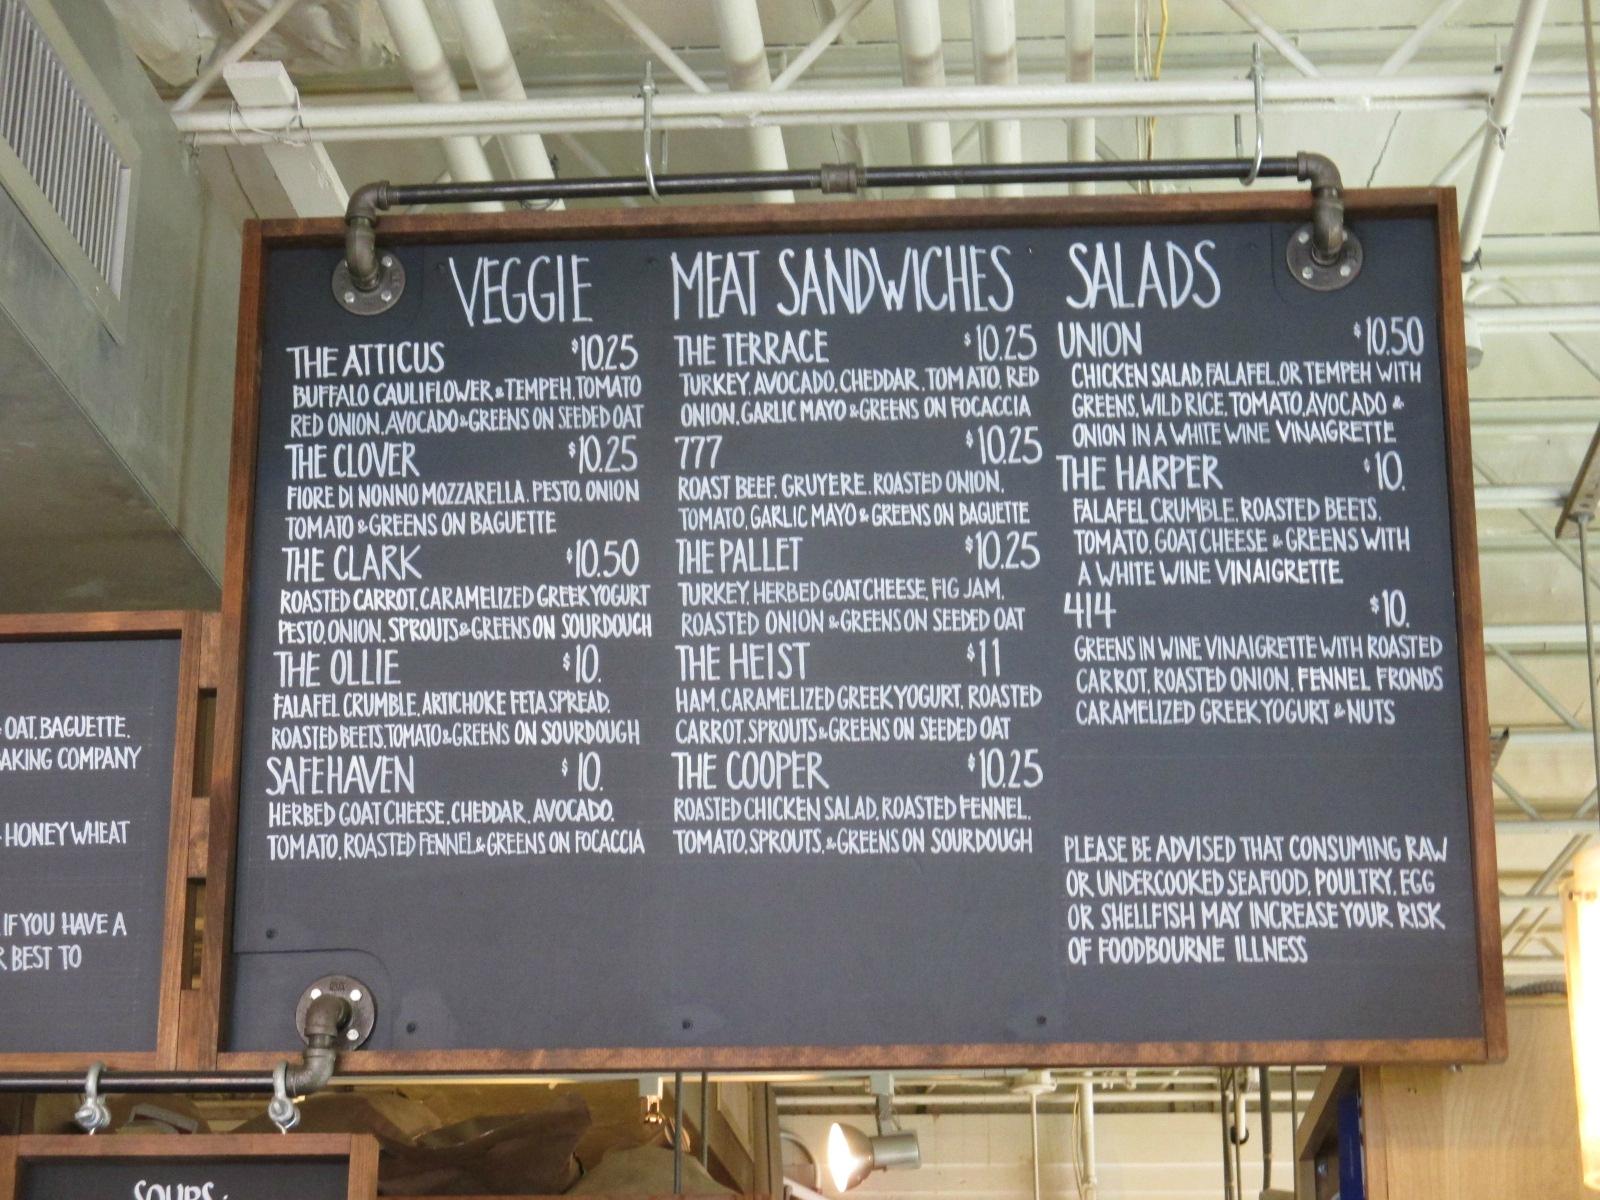 VEGGIE
THE ATTICUS $10.25
BUFFALO CAULIFLOWER & TEMPEH, TOMATO
RED ONION, AVOCADO & GREENS ON SEEDED OAT
THE CLOVER $10.25
FIORE DI NONNO MOZZARELLA, PESTO, ONION
TOMATO & GREENS ON BAGUETTE
THE CLARK $10.50
ROASTED CARROT, CARAMELIZED GREEK YOGURT
PESTO, ONION, SPROUTS & GREENS ON SOURDOUGH
THE OLLIE $10.
FALAFEL CRUMBLE, ARTICHOKE FETA SPREAD,
ROASTED BEETS, TOMATO & GREENS ON SOURDOUGH
SAFEHAVEN $10.
HERBED GOAT CHEESE, CHEDDAR, AVOCADO,
TOMATO, ROASTED FENNEL & GREENS ON FOCACCIA
MEAT SANDWICHES
THE TERRACE $10.25
TURKEY, AVOCADO, CHEDDAR, TOMATO, RED
ONION, GARLIC MAYO & GREENS ON FOCACCIA
777 $10.25
ROAST BEEF, GRUYERE, ROASTED ONION,
TOMATO, GARLIC MAYO & GREENS ON BAGUETTE
THE PALLET $10.25
TURKEY, HERBED GOAT CHEESE, FIG JAM,
ROASTED ONION & GREENS ON SEEDED OAT
THE HEIST $11
HAM, CARAMELIZED GREEK YOGURT, ROASTED
CARROT, SPROUTS & GREENS ON SEEDED OAT
THE COOPER $10.25
ROASTED CHICKEN SALAD, ROASTED FENNEL,
TOMATO, SPROUTS, & GREENS ON SOURDOUGH
SALADS
UNION $10.50
CHICKEN SALAD, FALAFEL, OR TEMPEH WITH
GREENS, WILD RICE, TOMATO, AVOCADO &
ONION IN A WHITE WINE VINAIGRETTE
THE HARPER $10.
FALAFEL CRUMBLE, ROASTED BEETS,
TOMATO, GOAT CHEESE & GREENS WITH
A WHITE WINE VINAIGRETTE
414 $10.
GREENS IN WINE VINAIGRETTE WITH ROASTED
CARROT, ROASTED ONION, FENNEL FRONDS
CARAMELIZED GREEK YOGURT & NUTS
PLEASE BE ADVISED THAT CONSUMING RAW
OR UNDERCOOKED SEAFOOD, POULTRY, EGG
OR SHELLFISH MAY INCREASE YOUR RISK
OF FOODBOURNE ILLNESS
OAT, BAGUETTE,
BAKING COMPANY
HONEY WHEAT
IF YOU HAVE A
BEST TO
SOUPS